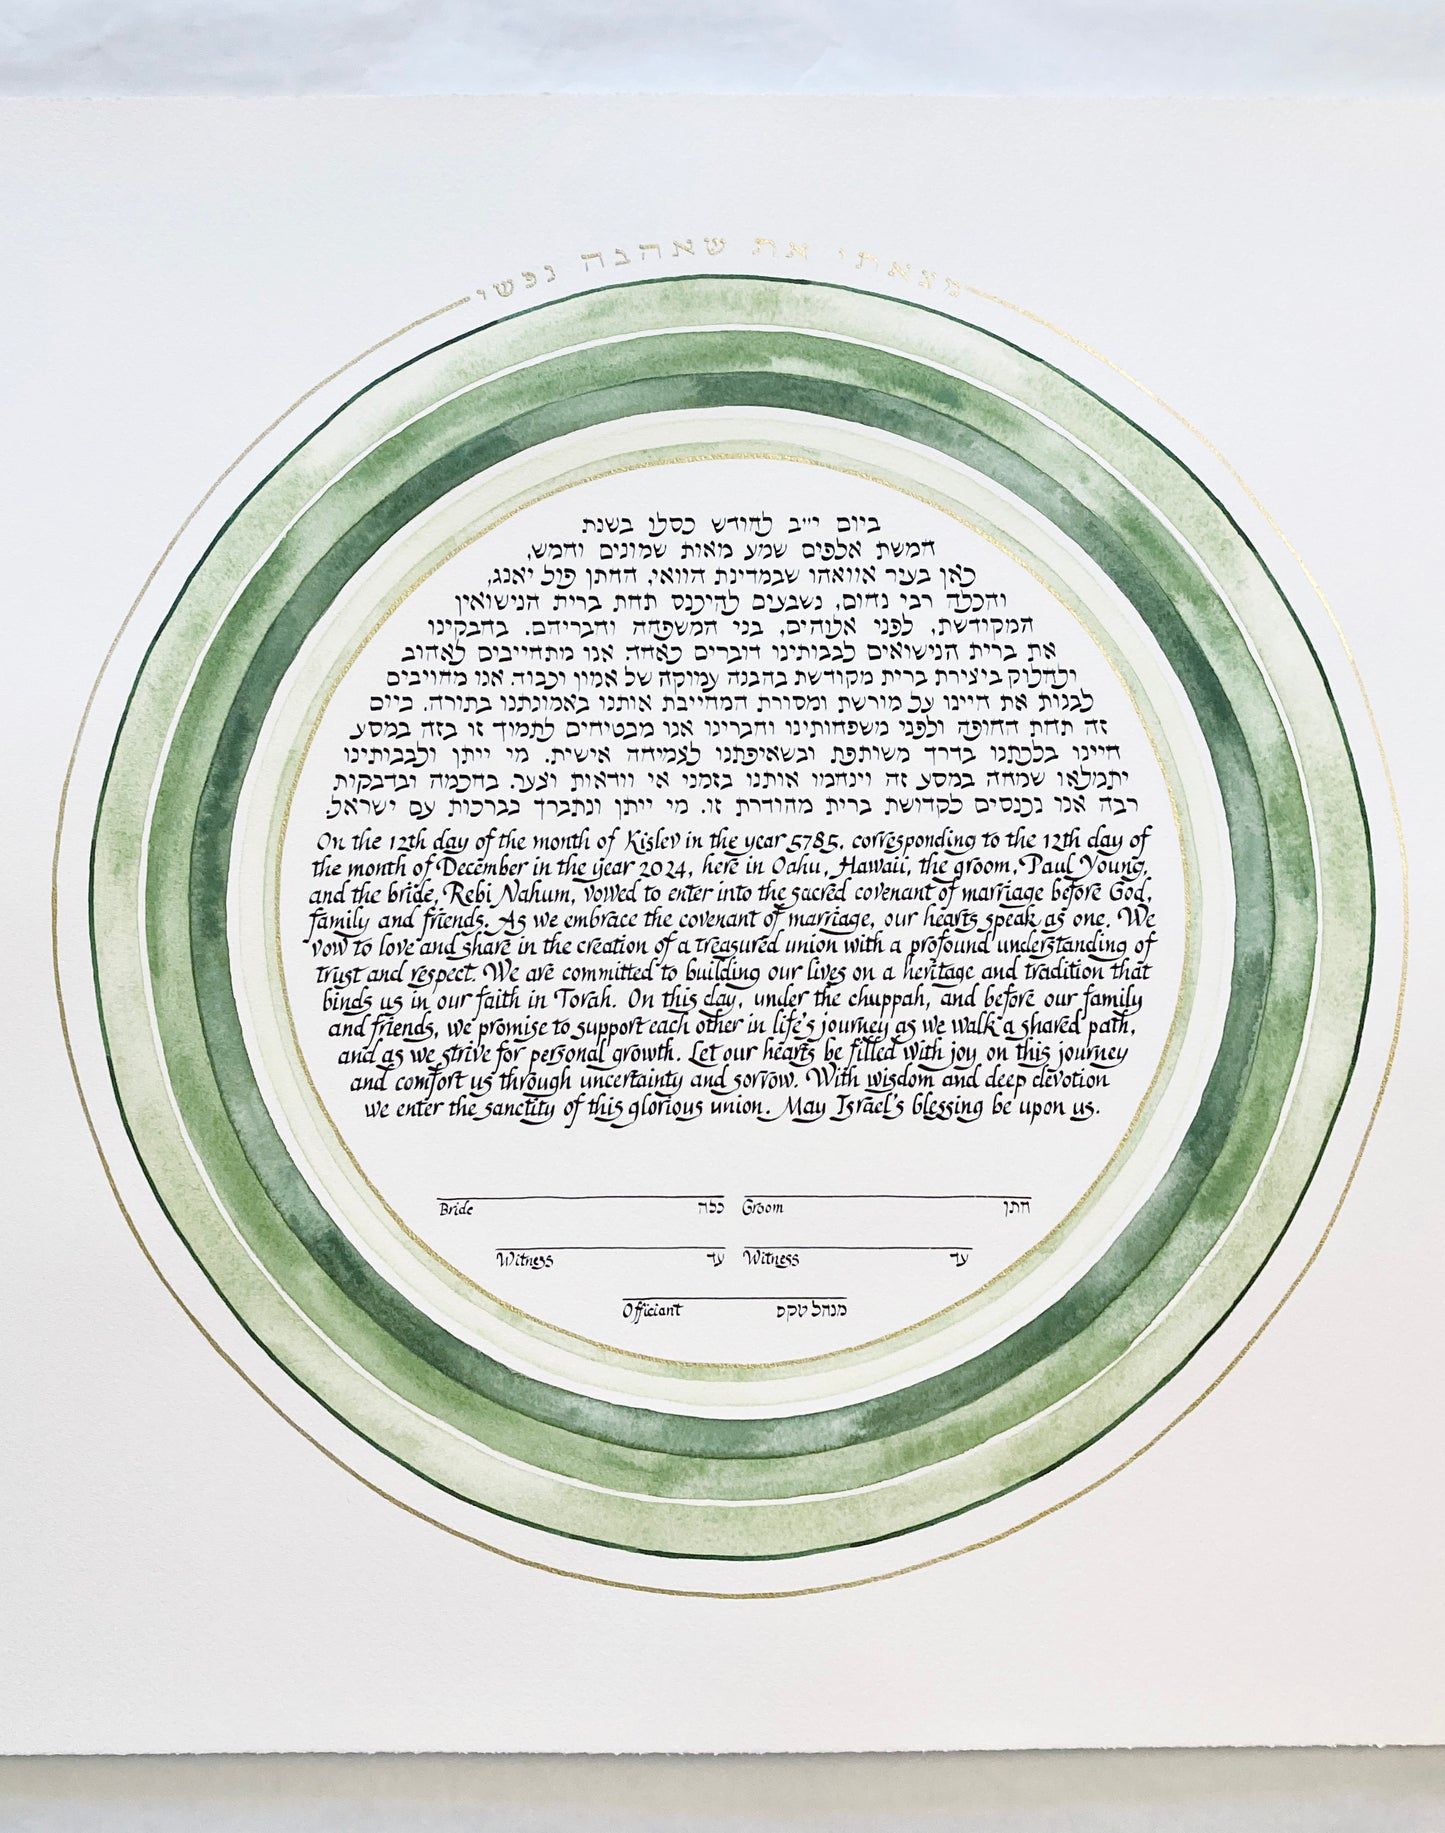 מצאתי את שאהבה נפשי
ביום י״ב לחודש כסלו בשנת
חמשת אלפים שמע מאות שמונים וחמש,
כאן בעיר אוואהו שבמדינת הוואי, החתן פול יאנג,
והכלה רבי נחום, נשבעים להיכנס תחת ברית הנישואין
המקודשת, לפני אלוהים, בני המשפחה וחבריהם. בחבקינו
את ברית הנישואים לבבותינו דוברים כאחה אנו מתחייבים לאהוב
ולחלוק ביצירת ברית מקודשת בהבנה עמוקה של אמון וכבוד. אנו מחויבים
לבנות את חיינו על מורשת ומסורת המחייבת אותנו באמונתנו בתורה. ביום
זה תחת החופה ולפני משפחותינו וחברינו אנו מבטיחים לתמוך זו בזה במסע
חיינו בלכתנו בדרך משותפת ובשאיפתנו לצמיחה אישית. מי ייתן ולבבותינו
יתמלאו שמחה במסע זה וינחמו אותנו בזמני אי וודאות וצער. בחכמה ובדבקות
רבה אנו נכנסים לקדושת ברית מהודרת זו. מי ייתן ונתברך בברכות עם ישראל.
On the 12th day of the month of Kislev in the year 5785, corresponding to the 12th day of
the month of December in the year 2024, here in Oahu, Hawaii, the groom, Paul Young,
and the bride, Rebi Nahum, vowed to enter into the sacred covenant of marriage before God,
family and friends. As we embrace the covenant of marriage, our hearts speak as one. We
vow to love and share in the creation of a treasured union with a profound understanding of
trust and respect. We are committed to building our lives on a heritage and tradition that
binds us in our faith in Torah. On this day, under the chuppah, and before our family
and friends, we promise to support each other in life's journey as we walk a shared path,
and as we strive for personal growth. Let our hearts be filled with joy on this journey
and comfort us through uncertainty and sorrow. With wisdom and deep devotion
we enter the sanctity of this glorious union. May Israel's blessing be upon us.
Bride כלה Groom חתן
Witness עד Witness עד
Officiant מנהל טקס